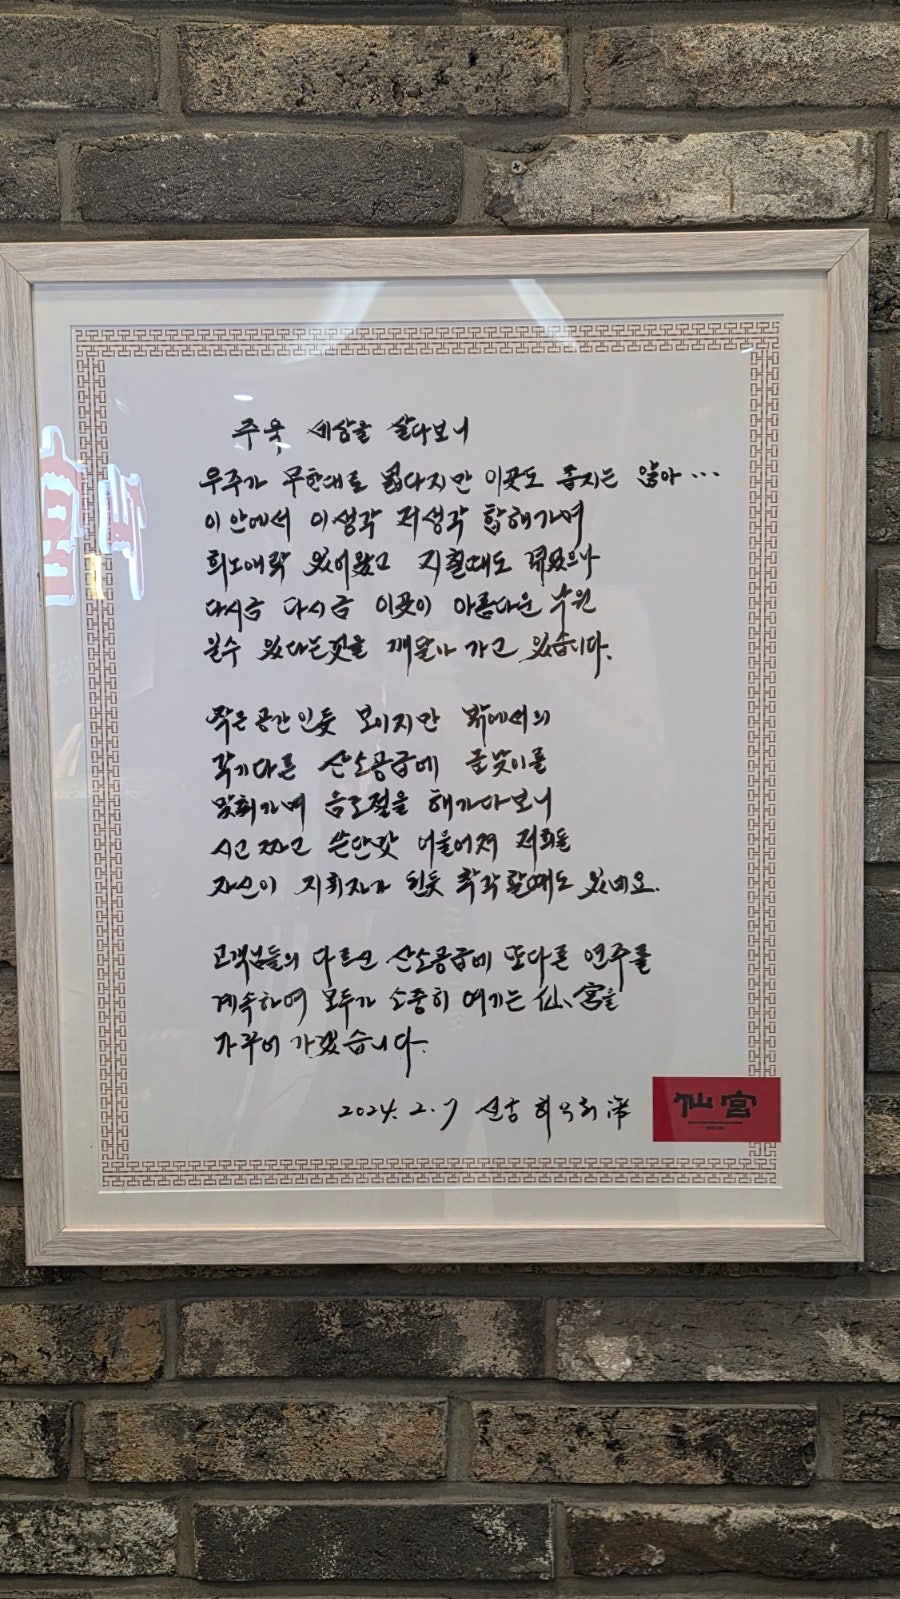 주옥 세상을 살다보니
우주가 무한대로 넓다지만 이곳도 좁지는 않아 ...
이 안에서 이생각 저생각 합해가며
희노애락 있어왔고 지칠때도 겪었으나
다시금 다시금 이곳이 아름다운 낙원
일수 있다는것을 깨달아 가고 있습니다.
작은 공간인듯 보이지만 밖에서의
각기다른 산소공급에 눈맞이를
맞춰가며 음조절을 해가다보니
시고 짜고 쓴단맛 어울어져 저희들
자신이 지휘자가 된듯 착각할때도 있네요.
고객님들의 다르신 산소공급에 또다른 연주를
계속하여 모두가 소중히 여기는 仙宮을
가꾸어 가겠습니다.
2024. 2. 7
仙宮